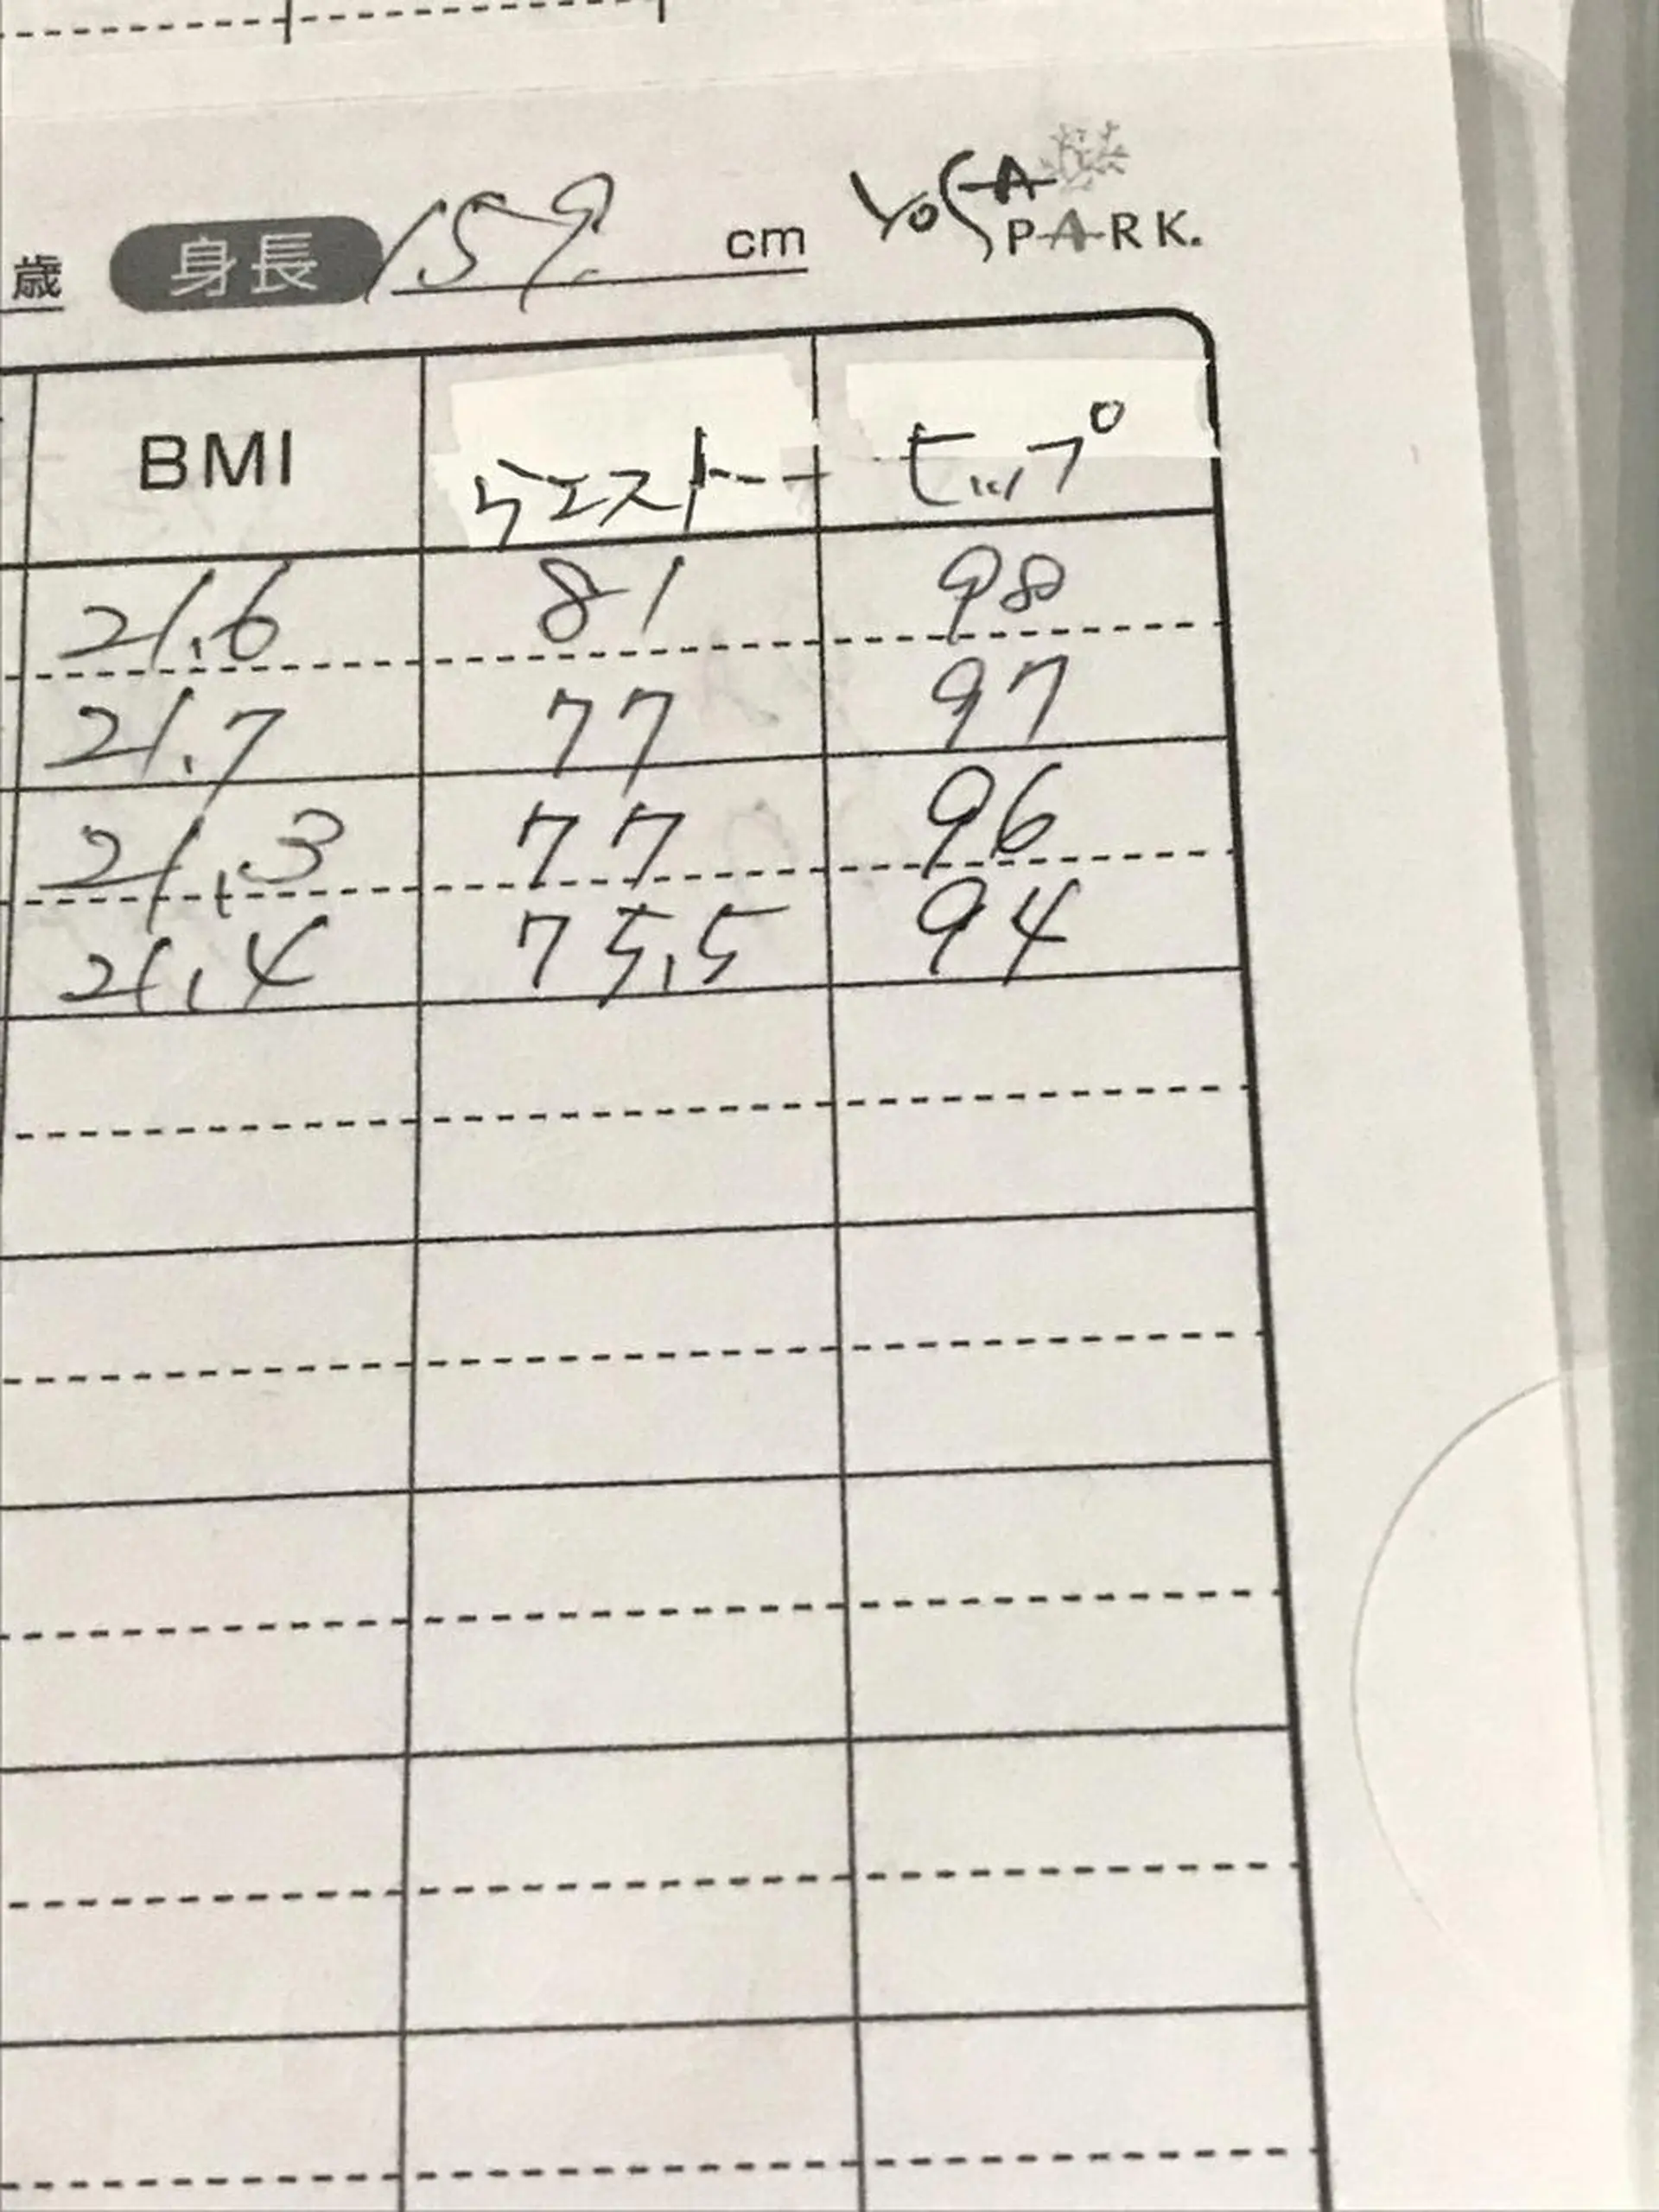 歳 身長 159. cm YOSA PARK.
BMI ウエスト ヒップ
21.6 81 98
21.7 77 97
21.3 77 96
21.4 75.5 94